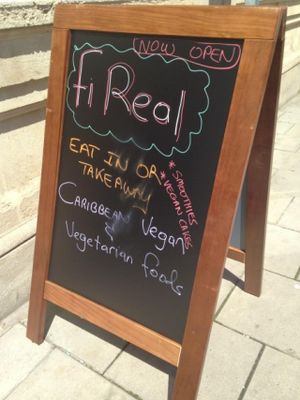 NOW OPEN
Fi Real
EAT IN OR
TAKEAWAY
* SMOOTHIES
* VEGAN CAKES
CARIBBEAN Vegan
&
Vegetarian foods